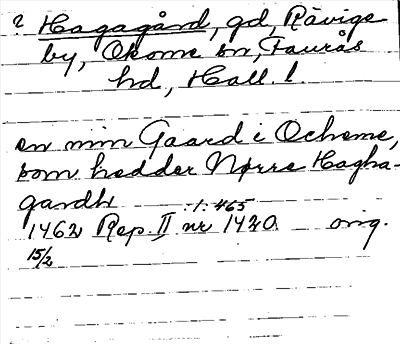 ? Hagagård, gd, Rävige
by, Okome sn, Faurås
hd, Hall. l.
en min Gaard i Ocheme,
som hedder Nørre Hagha-
gardh
:1:465
1462 Rep. II nr 1420 orig.
15/2